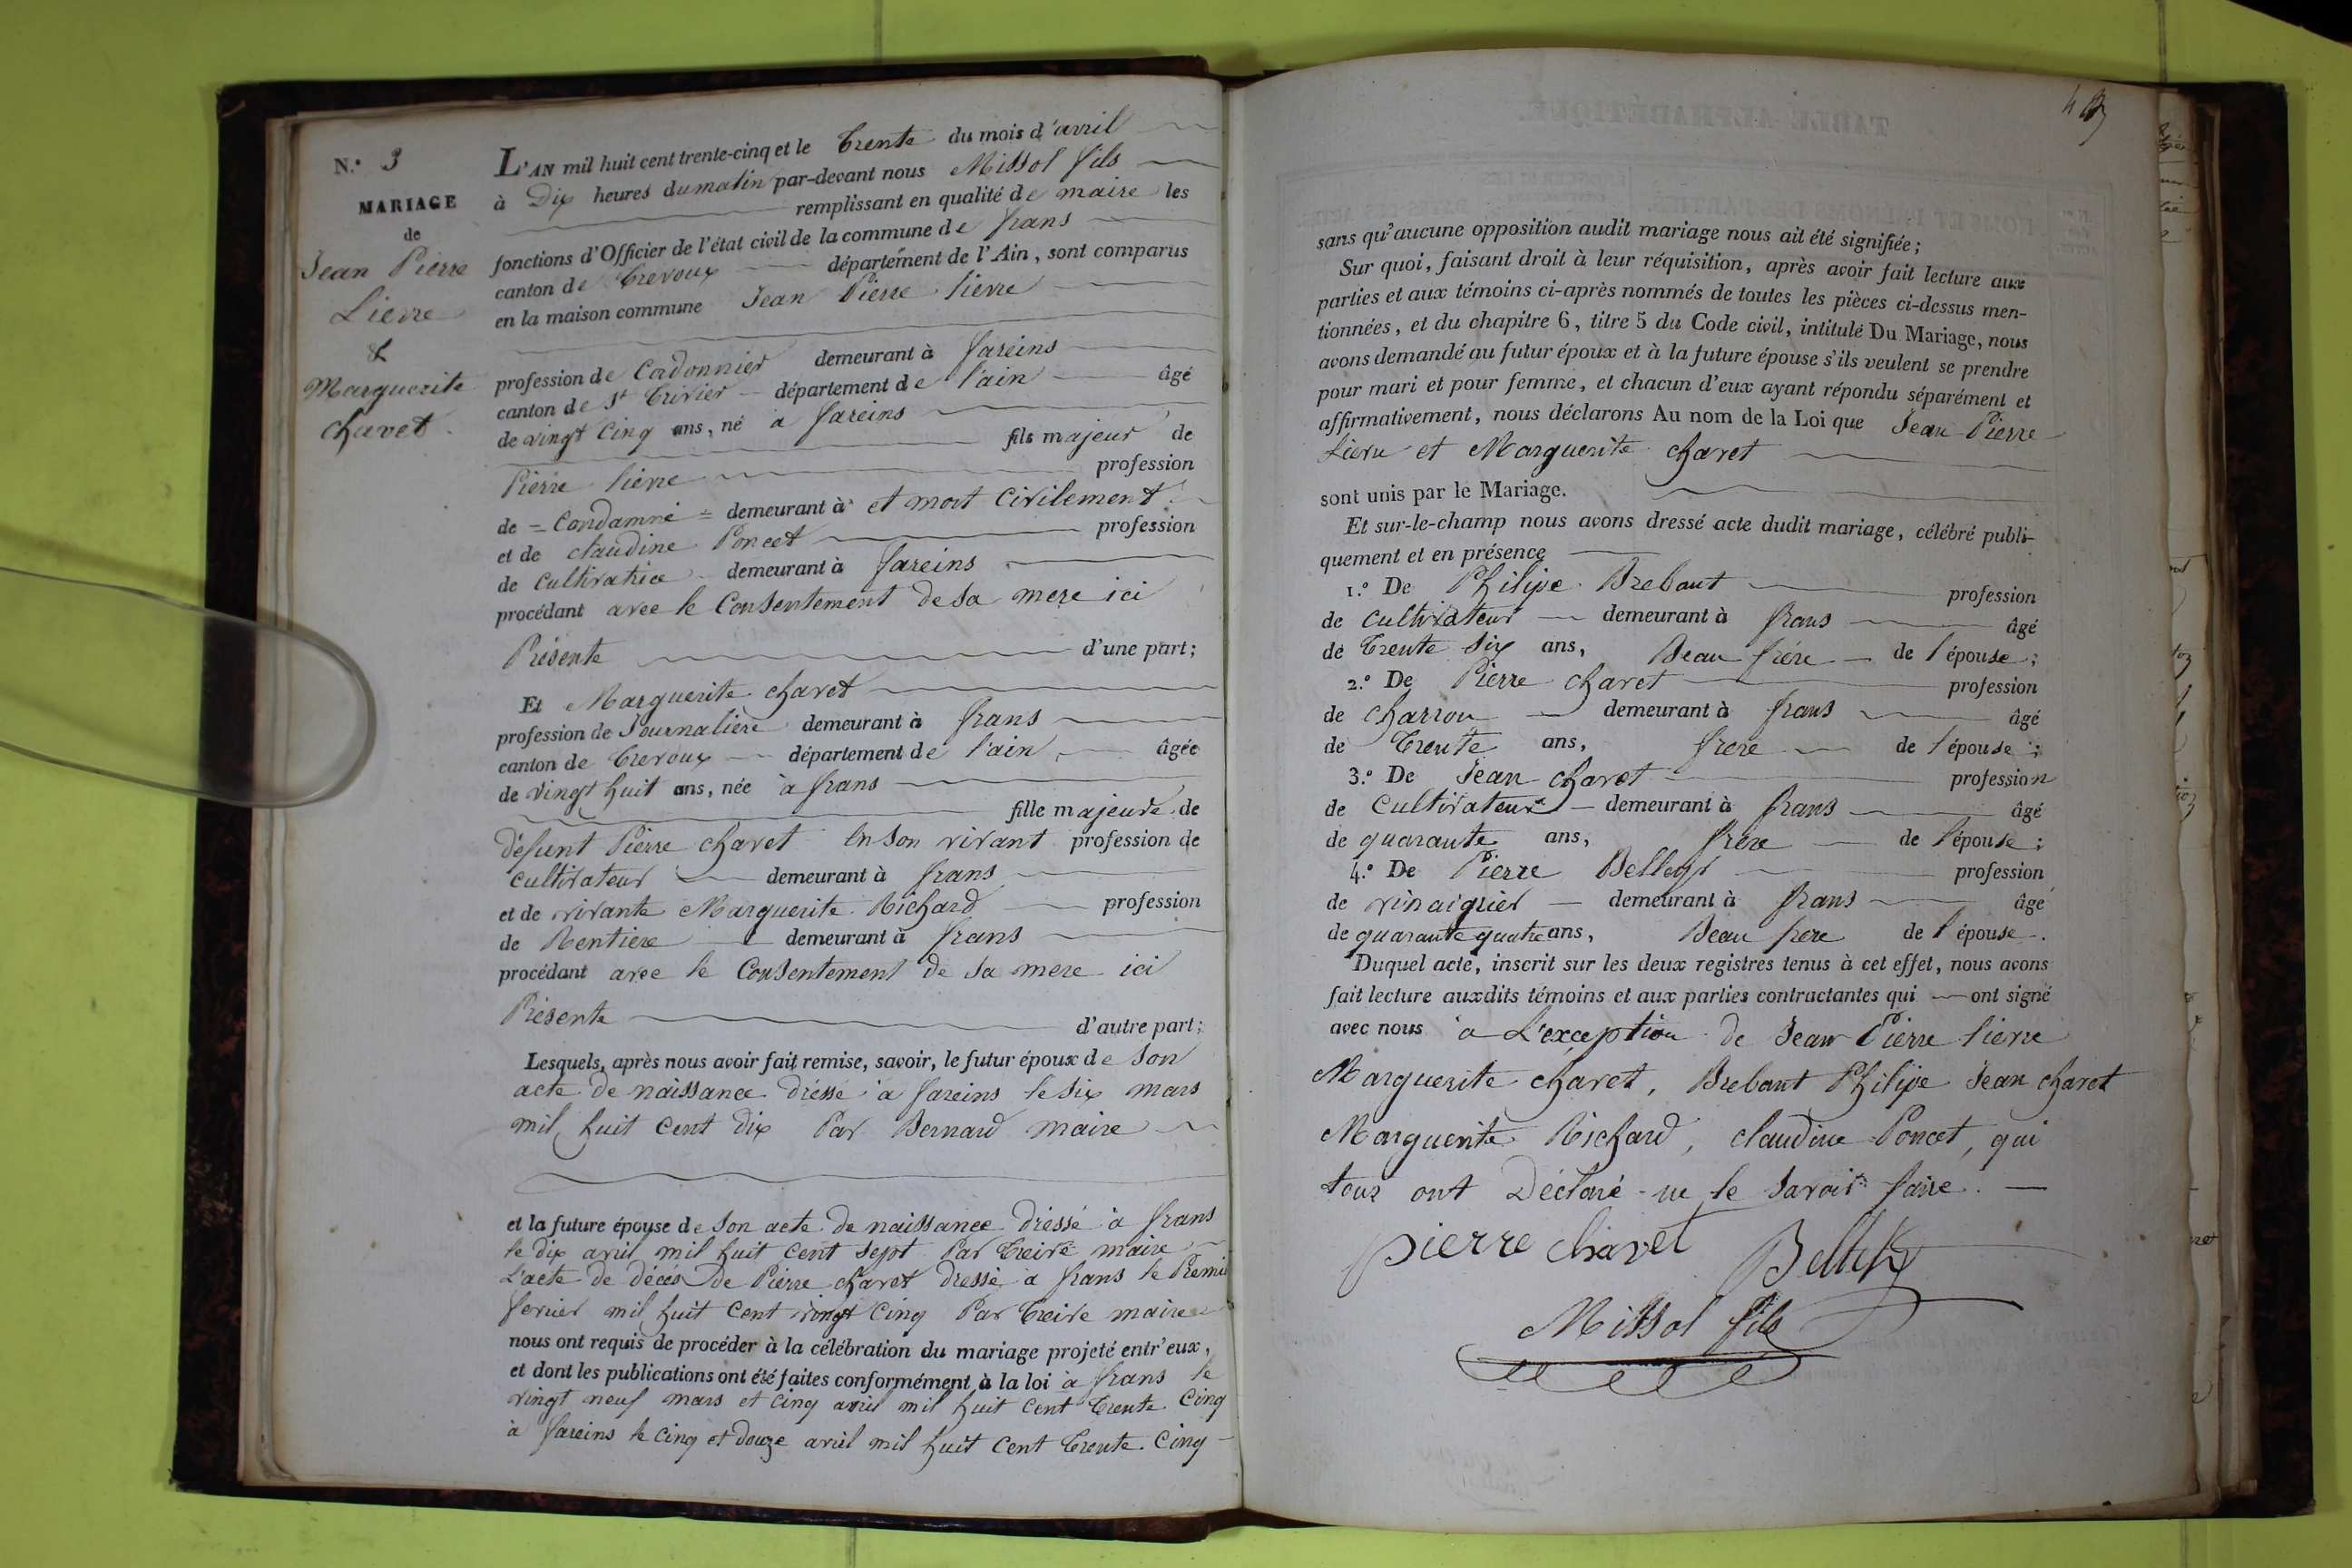 N.° 3
MARIAGE
de
Jean Pierre
Lievre
&
Marguerite
chavet.
L'AN mil huit cent trente-cinq et le Trente du mois d'avril
à Dix heures du matin par-devant nous Missol fils
remplissant en qualité de maire les
fonctions d'Officier de l'état civil de la commune de frans
canton de Trevoux département de l'Ain, sont comparus
en la maison commune Jean Pierre lievre
profession de Cordonnier demeurant à fareins
canton de St Trivier département de l'ain âgé
de vingt Cinq ans, né à fareins
fils majeur de
Pierre lievre profession
de = Condamné = demeurant à et mort Civilement.
et de claudine Poncet profession
de Cultivatrice demeurant à fareins
procédant avec le Consentement de sa mere ici
Présente d'une part;
Et Marguerite chavet
profession de Journaliere demeurant à frans
canton de Trevoux département de l'ain âgée
de vingt huit ans, née à frans
fille majeure de
défunt Pierre chavet En son vivant profession de
cultivateur demeurant à frans
et de vivante Marguerite Richard profession
de Rentiere demeurant à frans
procédant avec le Consentement de sa mere ici
Présente d'autre part;
Lesquels, après nous avoir fait remise, savoir, le futur époux de Son
acte de naissance dressé à fareins le six mars
mil huit cent dix Par Bernard maire
et la future épouse de Son acte de naissance dressé à frans
le dix avril mil huit cent sept Par Treive maire
L'acte de décès de Pierre chavet dressé à frans le Premier
fevrier mil huit cent vingt Cinq Par Treive maire
nous ont requis de procéder à la célébration du mariage projeté entr'eux,
et dont les publications ont été faites conformément à la loi à frans le
vingt neuf mars et Cinq avril mil huit cent Trente Cinq
à fareins le cinq et douze avril mil huit cent Trente. Cinq
sans qu'aucune opposition audit mariage nous ait été signifiée;
Sur quoi, faisant droit à leur réquisition, après avoir fait lecture aux
parties et aux témoins ci-après nommés de toutes les pièces ci-dessus men-
tionnées, et du chapitre 6, titre 5 du Code civil, intitulé Du Mariage, nous
avons demandé au futur époux et à la future épouse s'ils veulent se prendre
pour mari et pour femme, et chacun d'eux ayant répondu séparément et
affirmativement, nous déclarons Au nom de la Loi que Jean Pierre
Lievre et Marguerite chavet
sont unis par le Mariage.
Et sur-le-champ nous avons dressé acte dudit mariage, célébré publi-
quement et en présence
1.° De Philipe Brebant profession
de cultivateur demeurant à frans âgé
de Trente Six ans, Beau frére de l'épouse;
2.° De Pierre chavet profession
de Charron demeurant à frans âgé
de Trente ans, frere de l'épouse;
3.° De Jean chavet profession
de Cultivateur demeurant à frans âgé
de quarante ans, frere de l'épouse;
4.° De Pierre profession
de vinaigrier demeurant à frans âgé
de quarante quatre ans, Beau frere de l'épouse.
Duquel acte, inscrit sur les deux registres tenus à cet effet, nous avons
fait lecture auxdits témoins et aux parties contractantes qui ont signé
avec nous à L'exception de Jean Pierre lievre
Marguerite chavet, Brebant Philipe Jean chavet
Marguerite Richard, claudine Poncet, qui
tous ont Déclaré ne le savoir faire.
pierre chavet
Missol fils